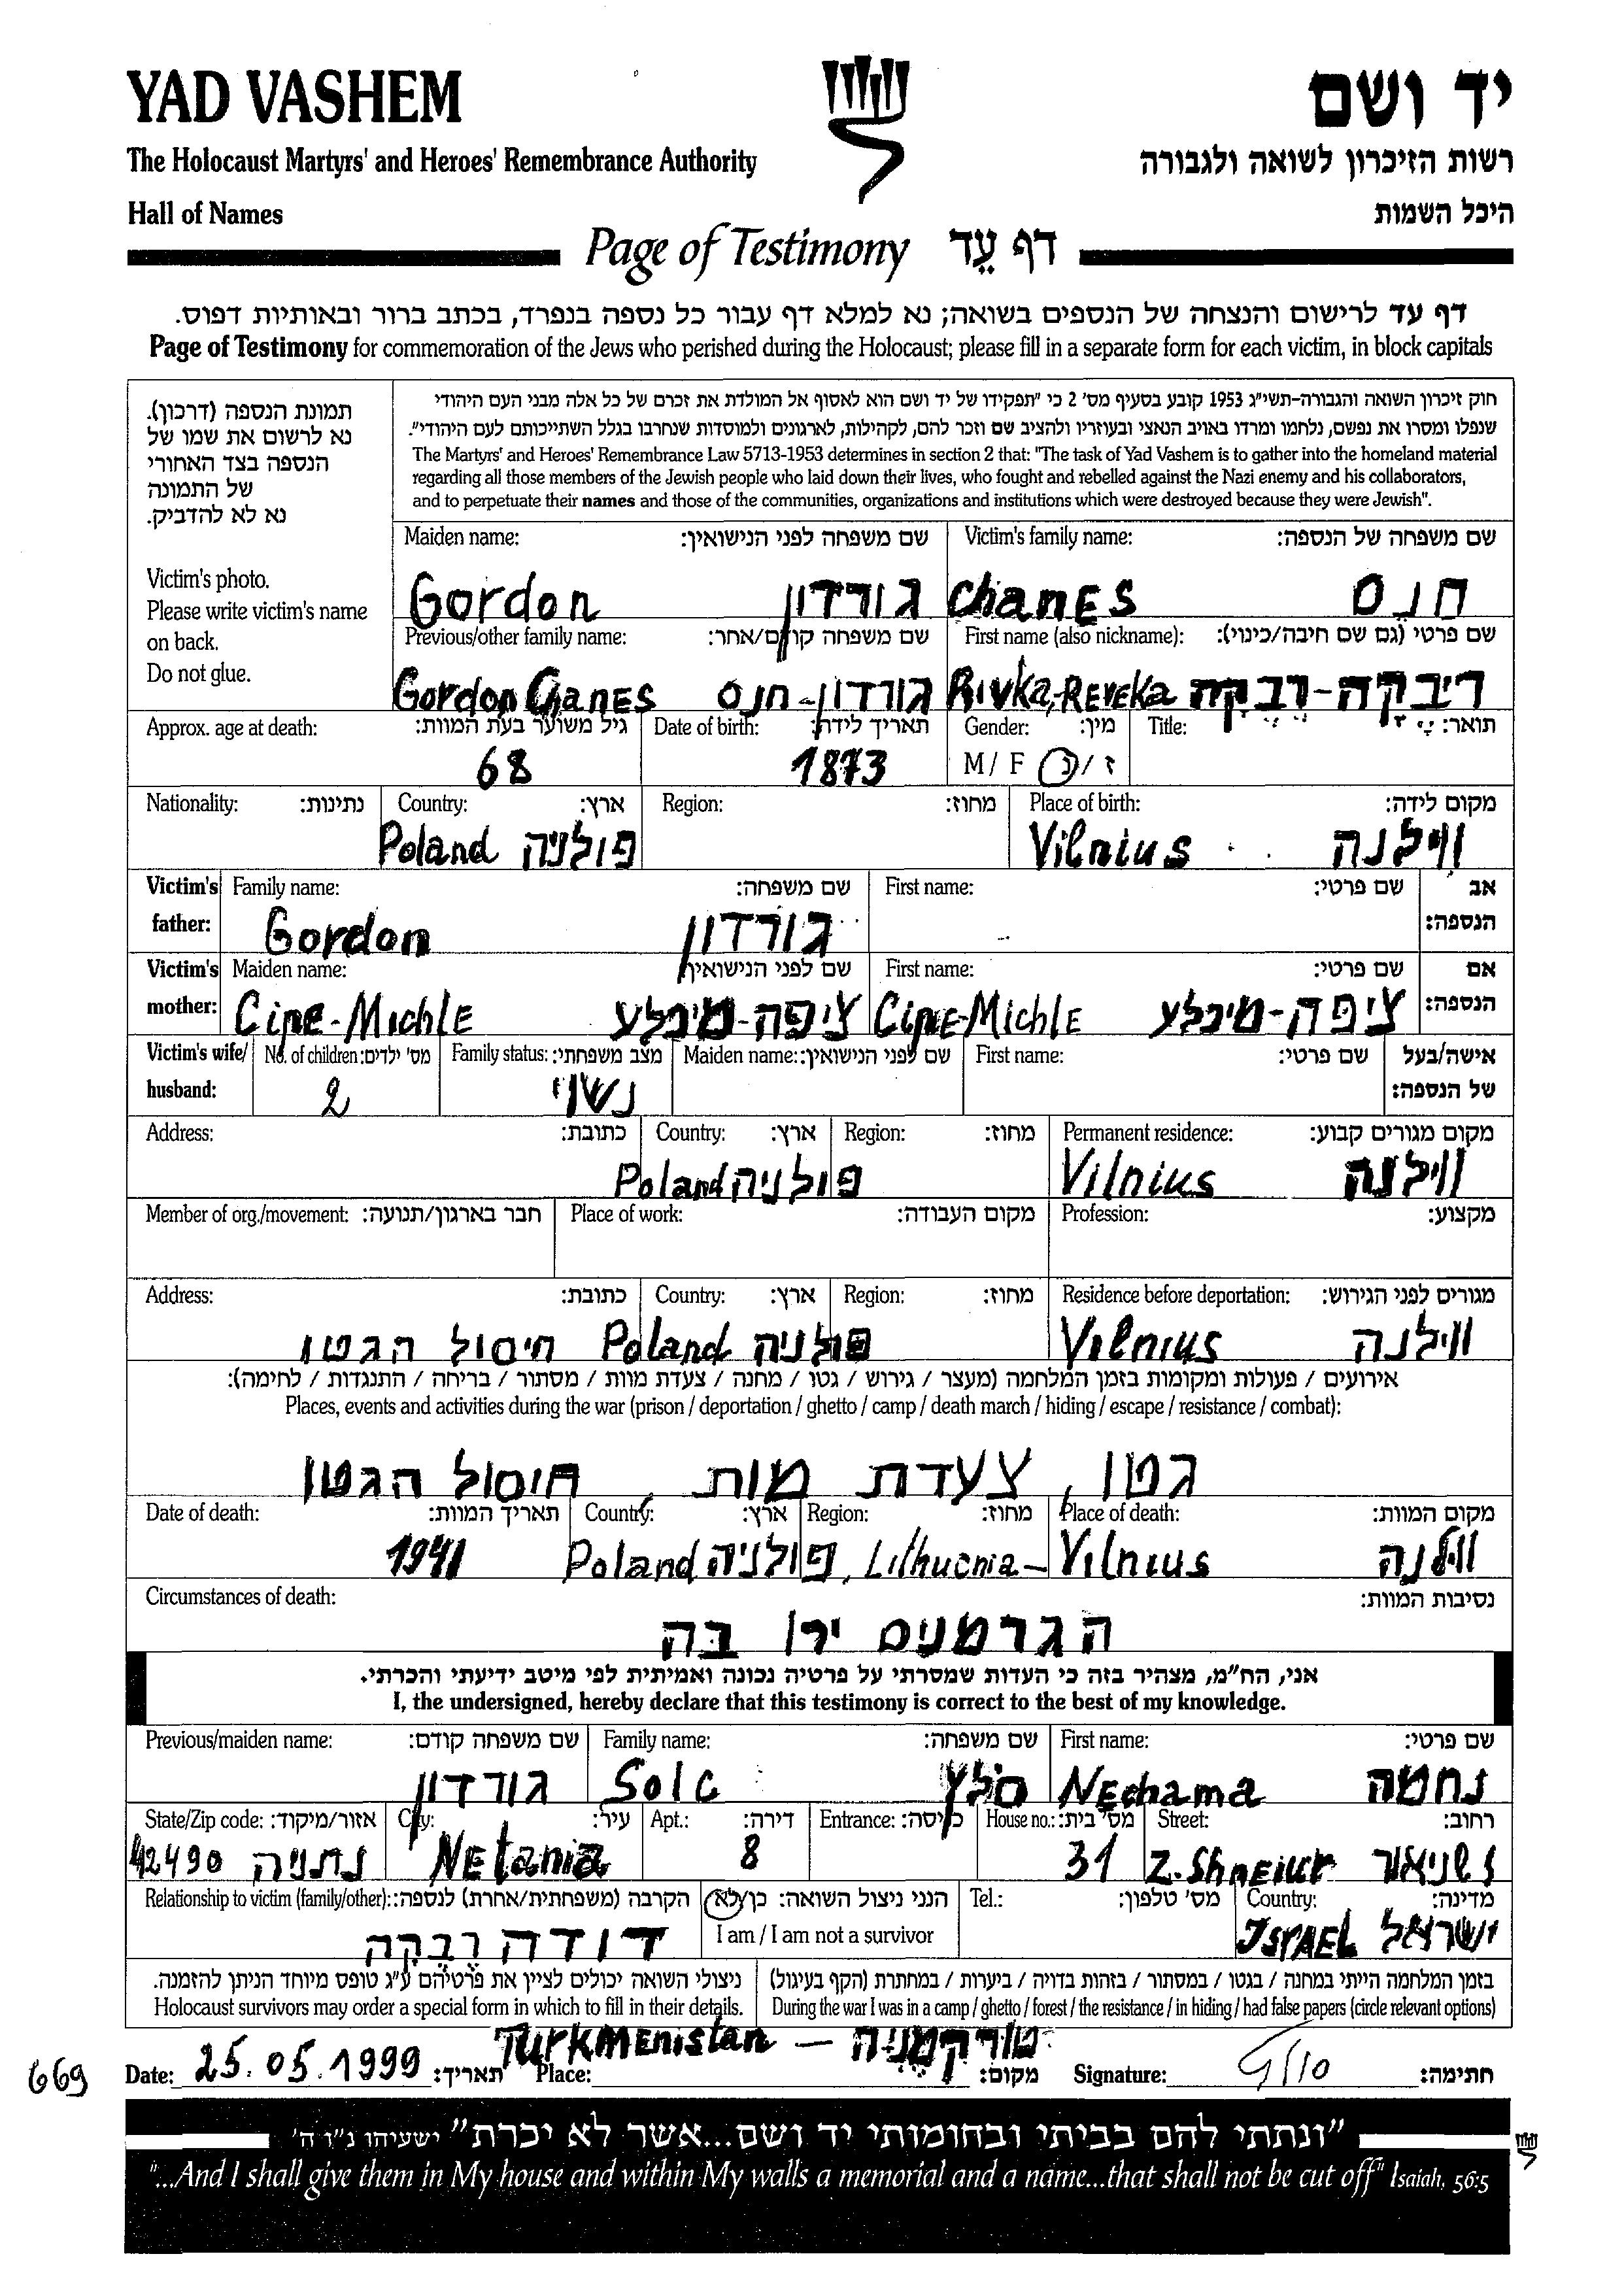 YAD VASHEM יד ושם
The Holocaust Martyrs' and Heroes' Remembrance Authority רשות הזיכרון לשואה ולגבורה
Hall of Names היכל השמות
Page of Testimony דף עֵד
דף עד לרישום והנצחה של הנספים בשואה; נא למלא דף עבור כל נספה בנפרד, בכתב ברור ובאותיות דפוס.
Page of Testimony for commemoration of the Jews who perished during the Holocaust; please fill in a separate form for each victim, in block capitals
תמונת הנספה (דרכון).
נא לרשום את שמו של
הנספה בצד האחורי
של התמונה
נא לא להדביק.
Victim's photo.
Please write victim's name
on back.
Do not glue.
חוק זיכרון השואה והגבורה-תשי"ג 1953 קובע בסעיף מס' 2 כי "תפקידו של יד ושם הוא לאסוף אל המולדת את זכרם של כל אלה מבני העם היהודי
שנפלו ומסרו את נפשם, נלחמו ומרדו באויב הנאצי ובעוזריו ולהציב שם וזכר להם, לקהילות, לארגונים ולמוסדות שנחרבו בגלל השתייכותם לעם היהודי".
The Martyrs' and Heroes' Remembrance Law 5713-1953 determines in section 2 that: "The task of Yad Vashem is to gather into the homeland material
regarding all those members of the Jewish people who laid down their lives, who fought and rebelled against the Nazi enemy and his collaborators,
and to perpetuate their names and those of the communities, organizations and institutions which were destroyed because they were Jewish".
Maiden name: שם משפחה לפני הנישואין: Victim's family name: שם משפחה של הנספה:
Gordon גורדון Chanes חנס
Previous/other family name: שם משפחה קודם/אחר: First name (also nickname): שם פרטי (גם שם חיבה/כינוי):
Gordon Chanes גורדון-חנס Rivka, Reveka ריבקה-רבקה
Approx. age at death: גיל משוער בעת המוות: Date of birth: תאריך לידה: Gender: מין: Title: תואר:
68 1873 M / F ז / נ
Nationality: נתינות: Country: ארץ: Region: מחוז: Place of birth: מקום לידה:
Poland פולניה Vilnius ווילנה
Victim's father: Family name: שם משפחה: First name: שם פרטי: אב הנספה:
Gordon גורדון
Victim's mother: Maiden name: שם לפני הנישואין First name: שם פרטי: אם הנספה:
Cipe-Michle ציפה-מיכלע Cipe-Michle ציפה-מיכלע
Victim's wife/ husband: No. of children: מס' ילדים: Family status: מצב משפחתי: Maiden name: שם לפני הנישואין: First name: שם פרטי: אישה/בעל של הנספה:
2 נשוי
Address: כתובת: Country: ארץ: Region: מחוז: Permanent residence: מקום מגורים קבוע:
Poland פולניה Vilnius ווילנה
Member of org./movement: חבר בארגון/תנועה: Place of work: מקום העבודה: Profession: מקצוע:
Address: כתובת: Country: ארץ: Region: מחוז: Residence before deportation: מגורים לפני הגירוש:
חיסול הגטו Poland פולניה Vilnius ווילנה
אירועים / פעולות ומקומות בזמן המלחמה (מעצר / גירוש / גטו / מחנה / צעדת מוות / מסתור / בריחה / התנגדות / לחימה):
Places, events and activities during the war (prison / deportation / ghetto / camp / death march / hiding / escape / resistance / combat):
גטו, צעדת מות, חיסול הגטו
Date of death: תאריך המוות: Country: ארץ: Region: מחוז: Place of death: מקום המוות:
1941 Poland פולניה, Lithucnia - Vilnius ווילנה
Circumstances of death: נסיבות המוות:
הגרמנים ירו בה
אני, הח"מ, מצהיר בזה כי העדות שמסרתי על פרטיה נכונה ואמיתית לפי מיטב ידיעתי והכרתי.
I, the undersigned, hereby declare that this testimony is correct to the best of my knowledge.
Previous/maiden name: שם משפחה קודם: Family name: שם משפחה: First name: שם פרטי:
גורדון Solc סלץ Nechama נחמה
State/Zip code: אזור/מיקוד: City: עיר: Apt.: דירה: Entrance: כניסה: House no.: מס' בית: Street: רחוב:
42490 נתניה Netania 8 31 Z. Shneiur ז שניאור
Relationship to victim (family/other): הקרבה (משפחתית/אחרת) לנספה: הנני ניצול השואה: כן/לא Tel.: מס' טלפון: Country: מדינה:
דודה רבקה I am / I am not a survivor ISRAEL ישראל
ניצולי השואה יכולים לציין את פרטיהם ע"ג טופס מיוחד הניתן להזמנה. בזמן המלחמה הייתי במחנה / בגטו / במסתור / בזהות בדויה / ביערות / במחתרת (הקף בעיגול)
Holocaust survivors may order a special form in which to fill in their details. During the war I was in a camp / ghetto / forest / the resistance / in hiding / had false papers (circle relevant options)
Turkmenistan - טורקמניה
669 Date: 25.05.1999 תאריך: Place: מקום: Signature: חתימה:
"ונתתי להם בביתי ובחומותי יד ושם...אשר לא יכרת" ישעיהו נ"ו ה'
"...And I shall give them in My house and within My walls a memorial and a name...that shall not be cut off" Isaiah, 56:5